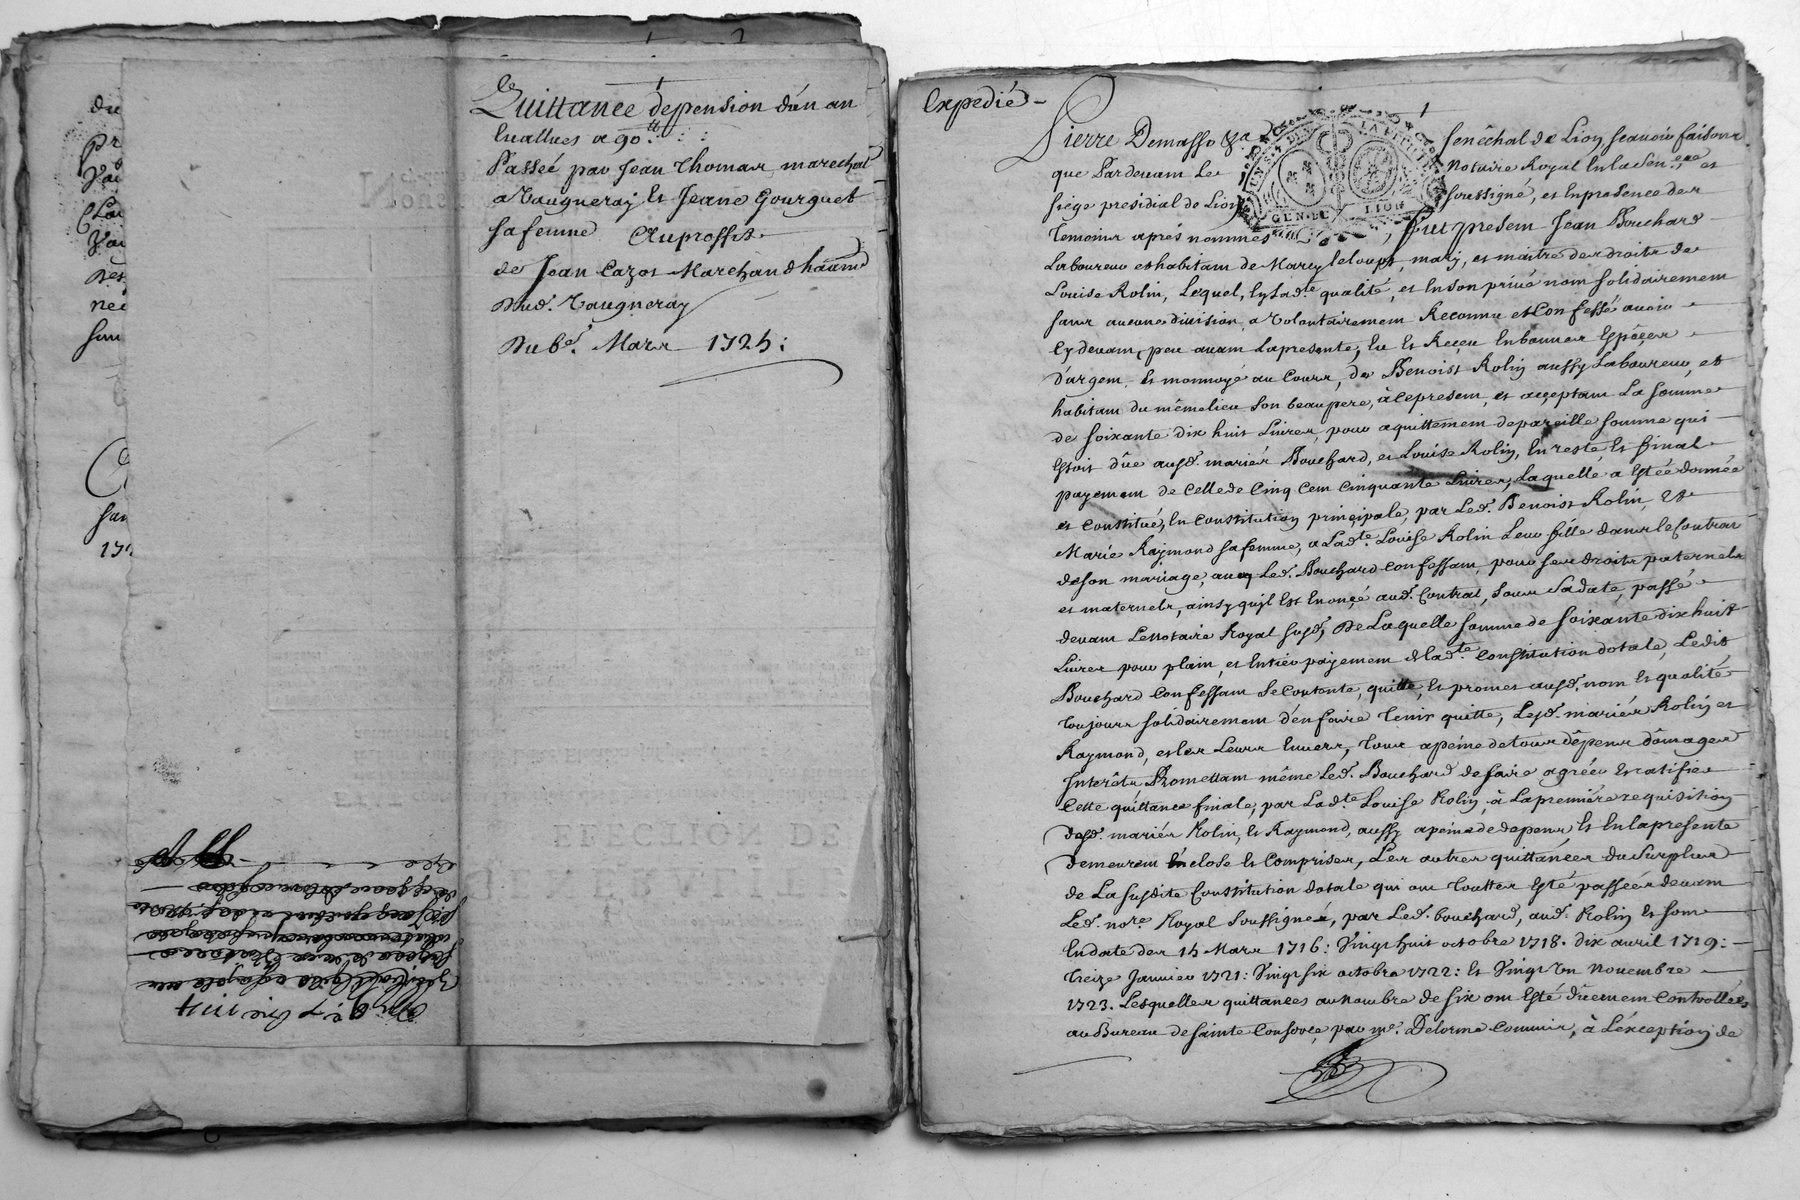 Quittance de pension d'un an
Evalluée a 90.tt
Passée par Jean Thomas, marechal
a Vaugneray et Jeane Gourguet
sa femme Au proffit
de Jean Cazot Marchand
Dud. Vaugneray
Du 6e. Mars 1725:
Expedié
Pierre Demasso &a Senêchal de Lion, scavoir faisons
que Pardevant Le Notaire Royal En la Sen.ée et
siége presidial de Lion soussigné, et En presence des
temoins aprés nommés, fut present Jean Bouchard
Laboureur et habitant de Marcy le loup, mary, et maitre des droits de
Louise Rolin, Lequel, En lad.te qualité, et En son privé nom solidairement
sans aucune division, a Volontairement Reconnu et Confessé avoir
Cy devant, peu avant La presente, Eu et Reçeu En bonnes Espéces
d'argent, et monnoyé au Cours, de Benoist Rolin aussy Laboureur, et
habitant du même lieu Son beaupere, à ce present, et acçeptant La Somme
de soixante dix huit Livres, pour aquittement de pareille somme qui
Estoit dûe ausd. mariés Bouchard, et Louise Rolin, En reste et final
payement de Celle de Cinq Cent Cinquante Livres, Laquelle a Esté donnée
et Constitué, En Constitution principale, par Led. Benoist Rolin, et
Marie Raymond sa femme, a Lad.te Louise Rolin Leur fille dans le Contrat
de son mariage, avec Led. Bouchard Confessant, pour ses droits paternels
et maternels, ainsy qu'il Est Enonçé aud. Contrat, Sous Sa date, passé
devant Le Notaire Royal susd., De Laquelle somme de Soixante dix huit
Livres pour plain, et Entier payement de lad.te Constitution dotale, Ledit
Bouchard Confessant Se Contente, quitte, et promet ausd. nom et qualité
toujours solidairement d'en faire tenir quitte, Lesd. mariés Rolin et
Raymond, et les Leurs Envers, tous a peine de tous dépens dômages
Interêts Promettant même Led. Bouchard de faire agréer et ratifier
Cette quittance finale, par Lad.te Louise Rolin, à La premiére requisition
desd. mariés Rolin, et Raymond, aussy a peine de depens et En la presente
demeurent Enclose et Comprises, Les autres quittances du Surplus
de La Susdite Constitution dotale qui ont toutes Esté passées devant
Led. no.re Royal Soussigné, par Led. bouchard, aud. Rolin et sont
En date des 15 Mars 1716: Vingt huit octobre 1718. dix avril 1719:
treize Janvier 1721: Vingt six octobre 1722: et Vingt Un Novembre
1723. Lesquelles quittances au nombre de six ont Esté dûement Controllées
au Bureau de Sainte Consorce, par me. Delorme Commis, à L'éxception de